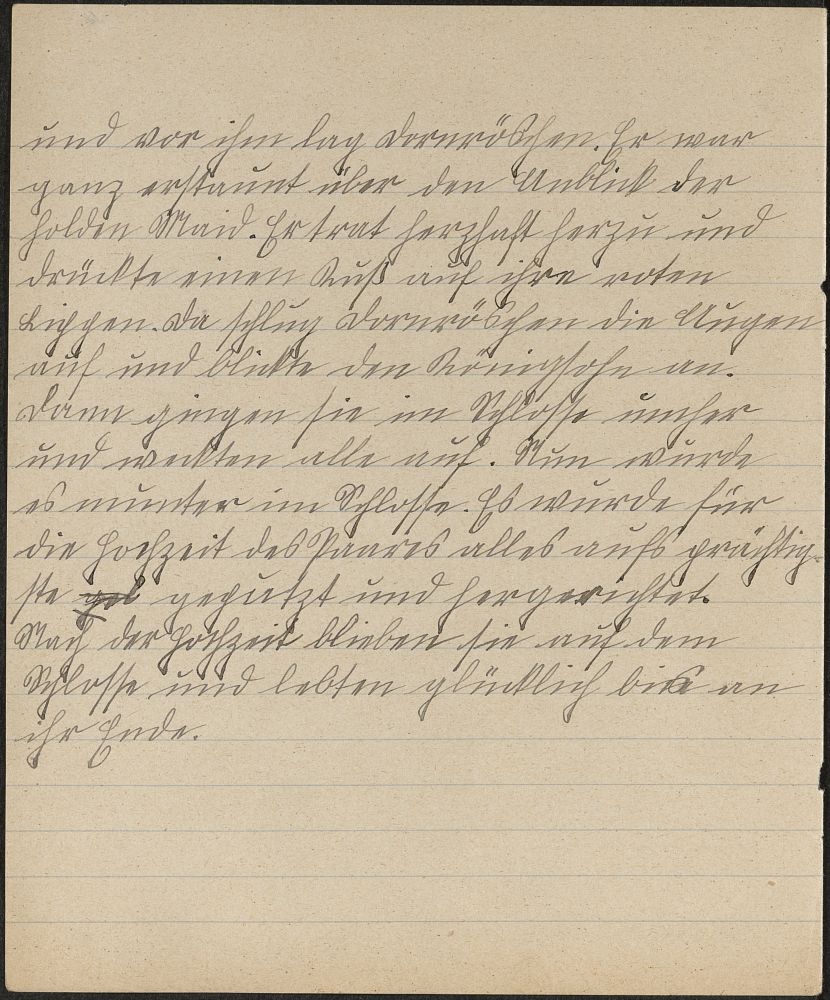 und vor ihm lag Dornröschen. Er war
ganz erstaunt über den Anblick der
holden Maid. Er trat herzhaft herzu und
drückte einen Kuß auf ihre roten
Lippen. Da schlug Dornröschen die Augen
auf und blickte den Königsohn an.
Dann gingen sie im Schlosse umher
und weckten alle auf. Nun wurde
es munter im Schlosse. Es wurde für
die Hochzeit des Paares alles aufs prächtig-
ste geputzt und hergerichtet.
Nach der Hochzeit blieben sie auf dem
Schlosse und lebten glücklich bis an
ihr Ende.